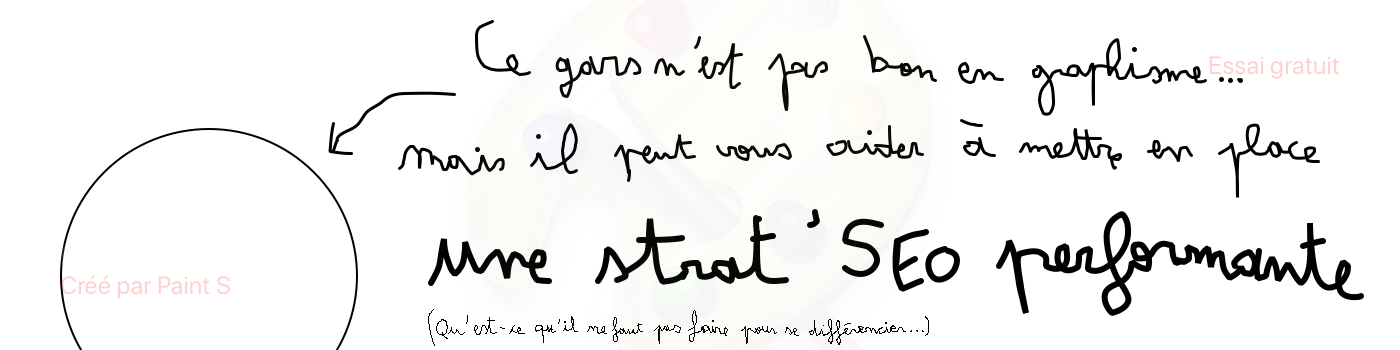 Ce gars n'est pas bon en graphisme...
Essai gratuit
mais il peut vous aider à mettre en place
une strat' SEO performante
Créé par Paint S
(Qu'est-ce qu'il ne faut pas faire pour se différencier...)